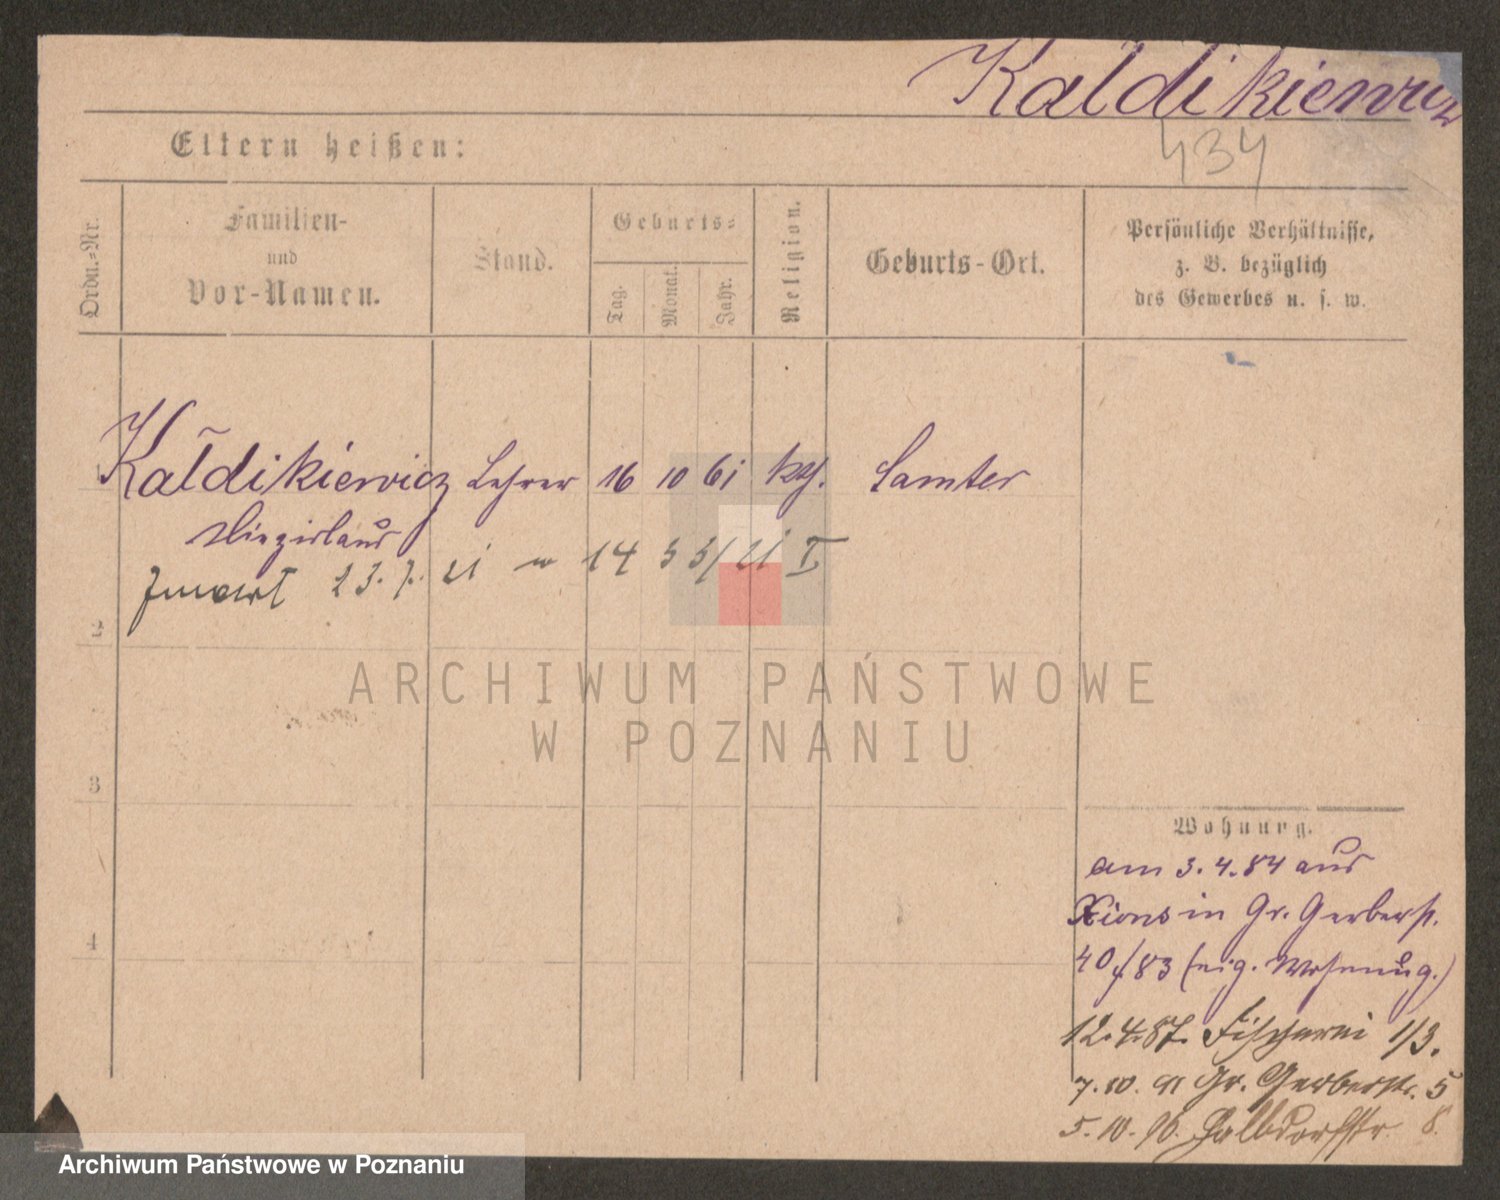 Kałdikiewicz
434
Eltern heißen:
Ordn.-Nr.
Familien-
und
Vor-Namen.
Stand.
Geburts-
Tag.
Monat.
Jahr.
Religion.
Geburts-Ort.
Persönliche Verhältnisse,
z. B. bezüglich
des Gewerbes u. s. w.
1 Kałdikiewicz Lehrer 16 10 61 kth. Samter
Zmart 23. 7. 21 14 5 21 I
2
3
4
ARCHIWUM PAŃSTWOWE
W POZNANIU
Wohnung.
am 3.4.84 aus
Xions in Gr. Gerberst.
40/83 (eig. Wohnung.)
12.4.87. Fischerei 1/3.
7.10.91 Gr. Gerberstr. 5
5.10.96. Halbdorfstr. 8.
Archiwum Państwowe w Poznaniu